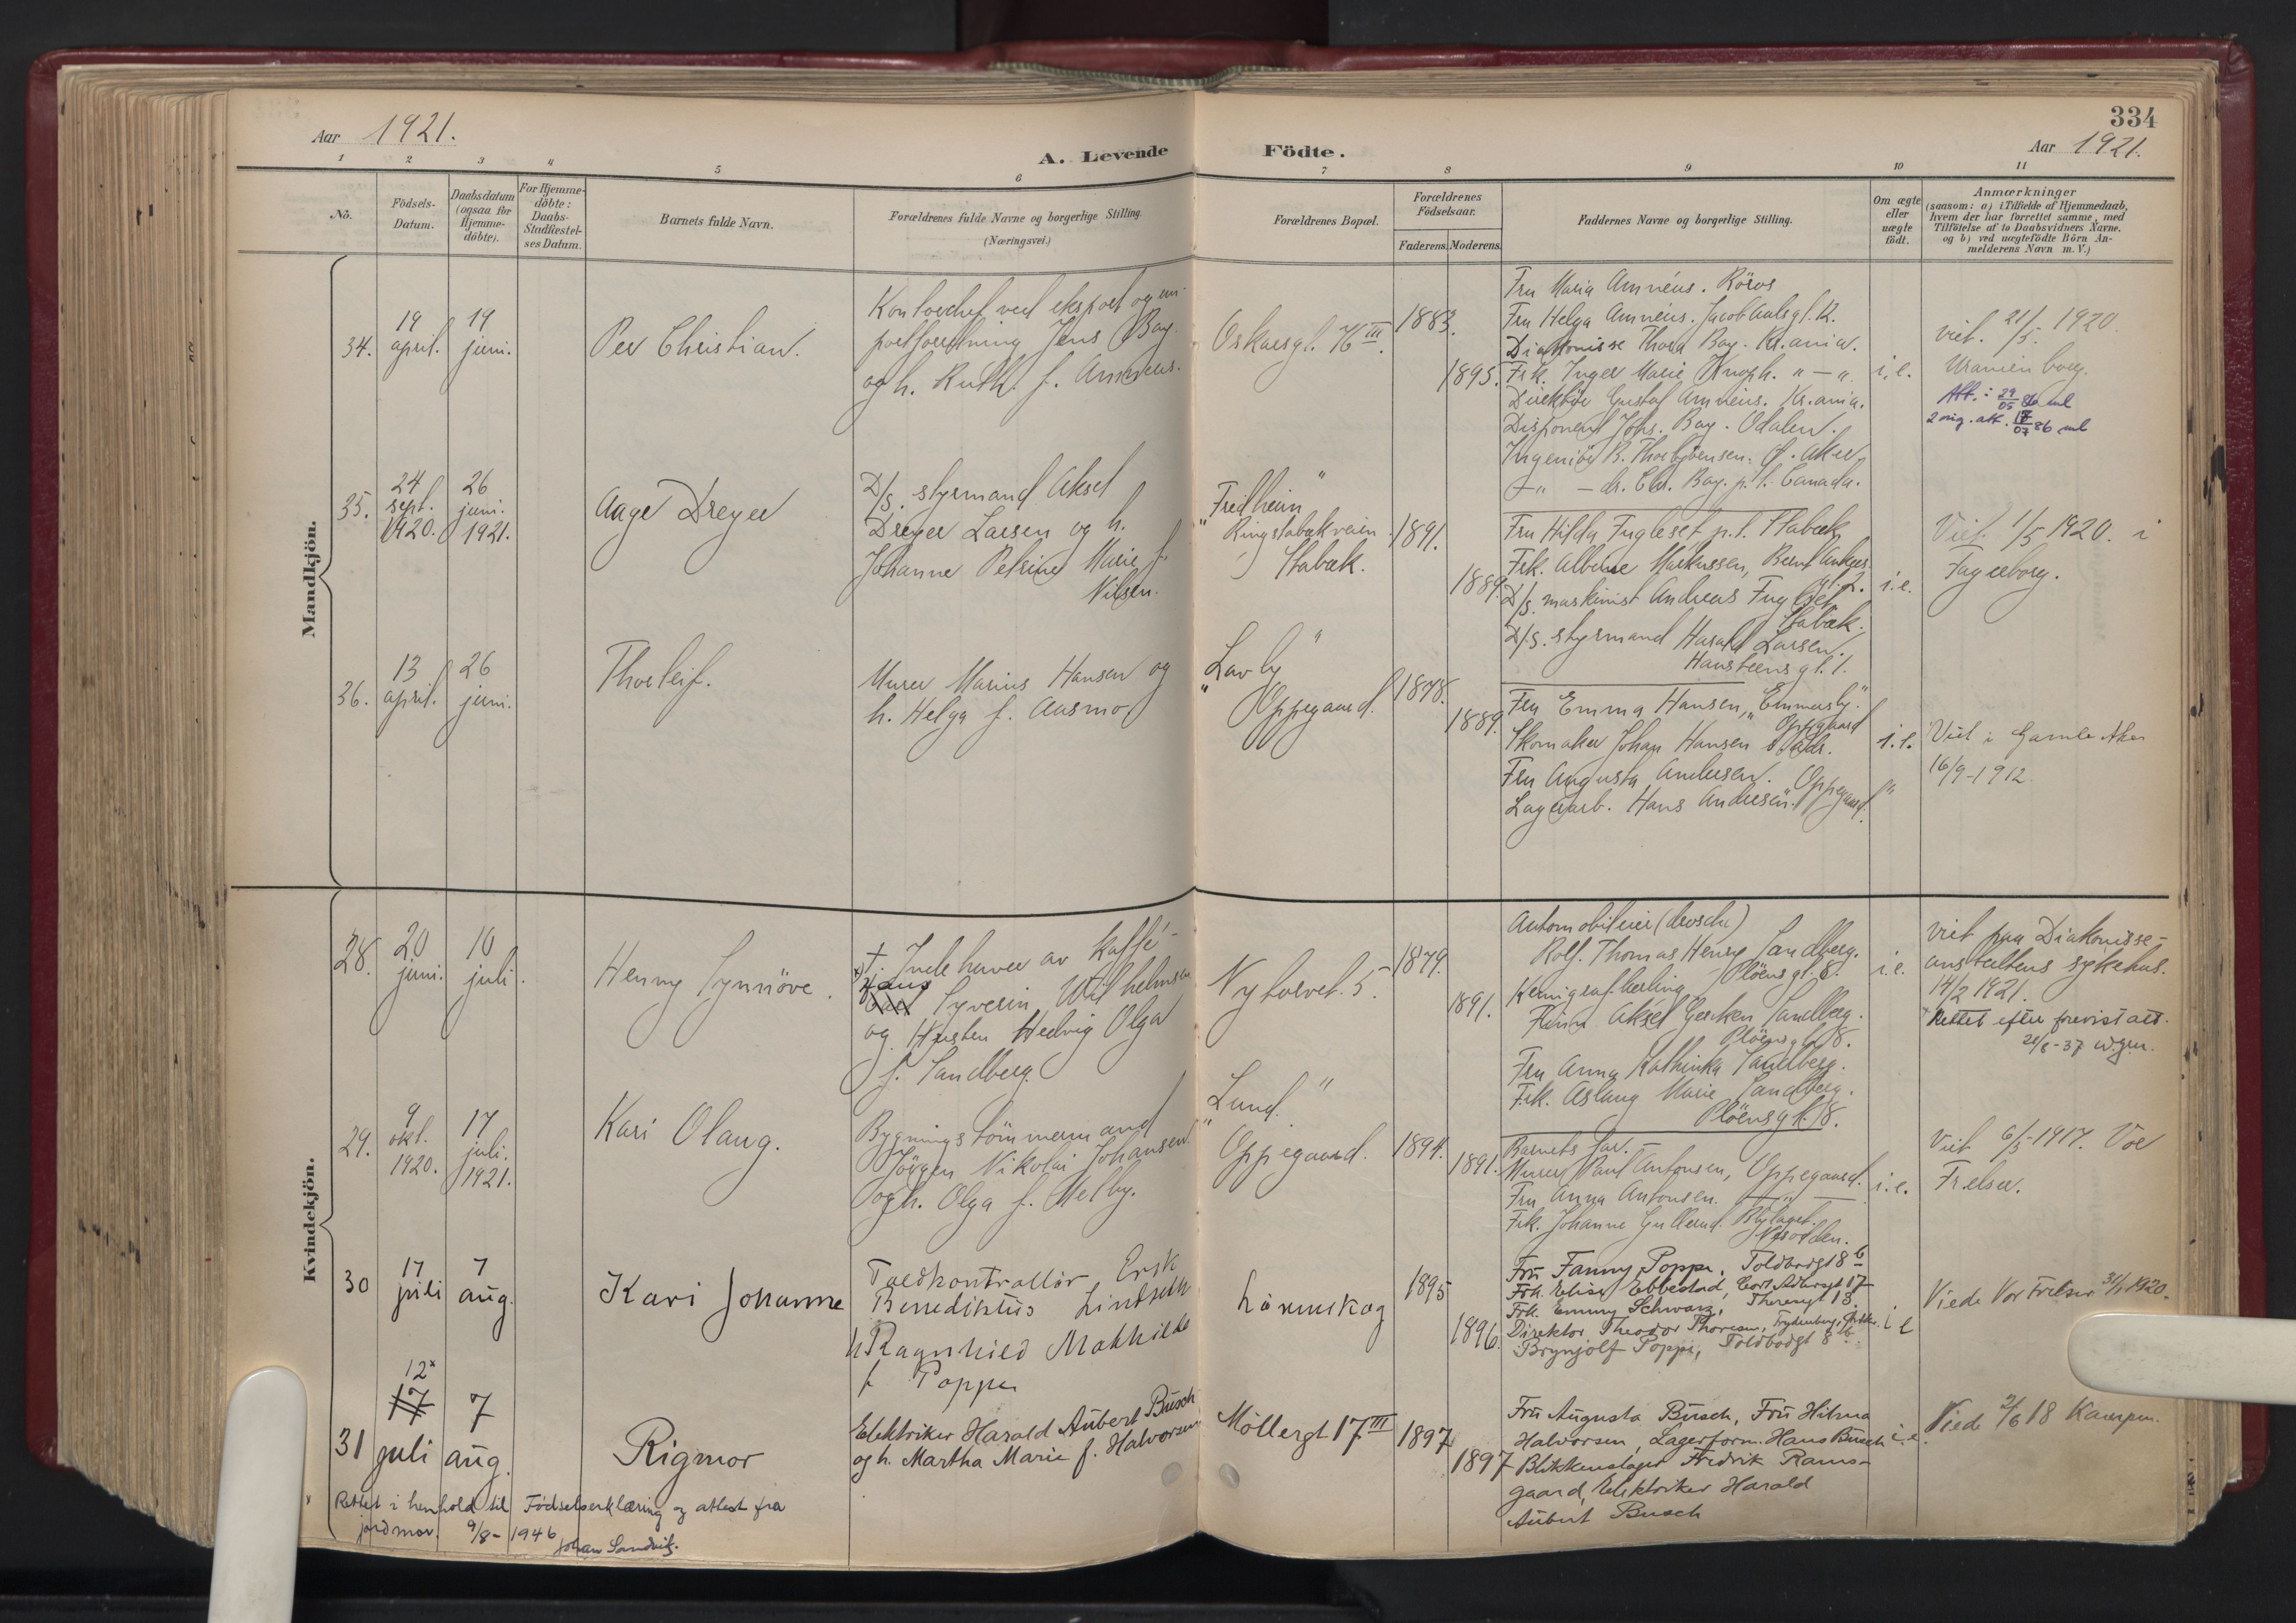 334
Aar 1921.
A. Levende Födte.
Aar 1921.
1 2 3 4 5 6 7 8 9 10 11
No.
Födsels-
Datum.
Daabsdatum
(ogsaa for
Hjemme-
döbte).
For Hjemme-
döbte:
Daabs-
Stadfæstel-
ses Datum.
Barnets fulde Navn.
Forældrenes fulde Navne og borgerlige Stilling.
(Næringsvei.)
Forældrenes Bopæl.
Forældrenes
Födselsaar.
Faderens. Moderens.
Faddernes Navne og borgerlige Stilling.
Om ægte
eller
uægte
födt.
Anmærkninger
(saasom: a) i Tilfælde af Hjemmedaab,
hvem der har forrettet samme, med
Tilföielse af to Daabsvidners Navne.
og b) ved uægtefödte Börn An-
melderens Navn m. V.)
Mandkjön.
34.
19
april.
19
juni.
Per Christian.
Kontorchef ved eksport og im-
portforretning Jens Bay.
og h. Ruth. f. Amnéus.
Oskarsgt. 76 III.
1883.
1895.
Fru Maria Amnéus. Röros
Fru Helga Amnéus. Jacob Aalsgt. 12.
Diakonisse Thora Bay. Kr.ania.
Frk. Inger Marie Knoph. " — "
Direktör Gustaf Amnéus. Kr.ania.
Disponent Johs. Bay. Odalen.
Ingeniör B. Thorbjörnsen. Ö. Aker
— " — dr. Chr. Bay. p.t. Canada.
i.e.
viet. 21/5. 1920.
Uranienborg.
Att.: 29/05
2 orig. att. 17/07 86
35.
24
sept.
1920.
26
juni.
1921.
Aage Dreyer
D/s. styrmand Aksel
Dreyer Larsen og h.
Johanne Petrine Marie f.
Nilsen.
"Fredheim"
Ringstabækveien
Stabæk.
1891.
1889.
Fru Hilda Fugleset p.t. Stabæk
Frk. Albertine Markussen, Bernt Ankers
gt. 2.
D/s. maskinist Andreas Fugleset
Stabæk.
D/s. styrmand Harald Larsen.
Hansteensgt. 1.
i.e.
Viet. 1/5 1920. i
Fagerborg.
36.
13
april.
26
juni.
Thorleif.
Murer Marius Hansen og
h. Helga f. Aasmo
"Lavly"
Oppegaard.
1878.
1889.
Fru Emma Hansen, "Emmerby".
Oppegaard
Skomaker Johan Hansen
Fru Augusta Andersen. Oppegaard
Lagerarb. Hans Andersen. "
i.e.
Viet i Gamle Aker
16/9-1912.
Kvindekjön.
28.
20
juni.
10
juli.
Henny Synnöve.
†. Indehaver av kaffé-
Syverin Wilhelmsen
og Hustru Hedvig Olga
f. Sandberg.
Nytorvet. 5.
1879.
1891.
Automobileier (drosche)
Rolf. Thomas Henry Sandberg.
Plöensgt. 8.
Kemigraf lærling
Finn Aksel Gerken Sandberg.
Plöensgt. 8.
Fru Anna Kathinka Sandberg.
Frk. Aslaug Marie Sandberg.
Plöensgt. 8.
i.e.
viet paa Diakonisse-
anstaltens sykehus.
14/2 1921.
Rettet efter forevist att.
21/6-37
29.
9
okt.
1920.
17
juli.
1921.
Kari Olaug.
Bygningstömmermand
Jörgen Nikolai Johansen
og h. Olga f. Melby.
"Lund."
Oppegaard.
1894.
1891.
Barnets far.
Murer Paul Antonsen, Oppegaard.
Fru Anna Antonsen. — " —
Frk. Johanne Gullerud. Blylaget.
Nesodden.
i.e.
Viet 6/5-1917. Vor
Frelser.
30
17
juli
7
aug.
Kari Johanne
Toldkontrollör Erik
Benediktus Lindseth
h Ragnhild Mathilde
f Poppe
Lörenskog
1895
1896.
Fru Fanny Poppe, Toldbodgt 8b
Frk. Elise Ebbestad, Carl Adlersgt 17
Frk. Emmy Schwarz, Theresegt 13
Direktor Theodor Thoresen,
Brynjolf Poppe, Toldbodgt 8b.
i e
Viede Vor Frelser 31/1 1920.
31
12*
17
juli
7
aug.
Rigmor
Elektriker Harald Aubert Busch
og h. Martha Marie f. Halvorsen
Möllergt 17 III
1897
1897
Fru Augusta Busch, Fru Hilma
Halvorsen, Lagerform. Hans Busch
Blikkenslager Fredrik Rams-
gaard, Elektriker Harald
Aubert Busch
i.e.
Viede 2/6 18 Kampen.
* Rettet i henhold til Födselserklæring og attest fra
jordmor. 9/8-1946 Johan Sandvik.